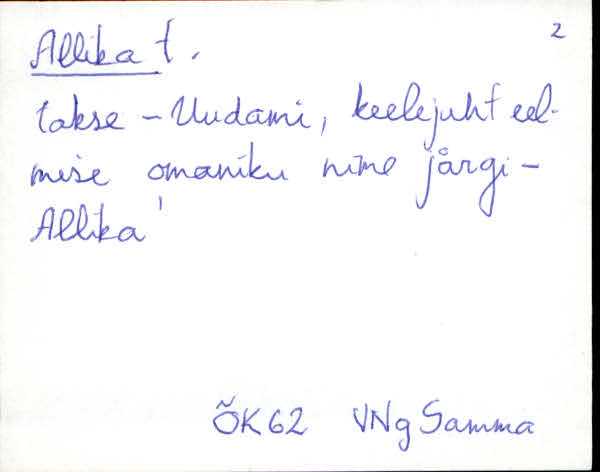 2
Allika t.
takse – Uudami, keelejuht eel-
mise omaniku nime järgi –
Allika'
ÕK 62 VNg Samma